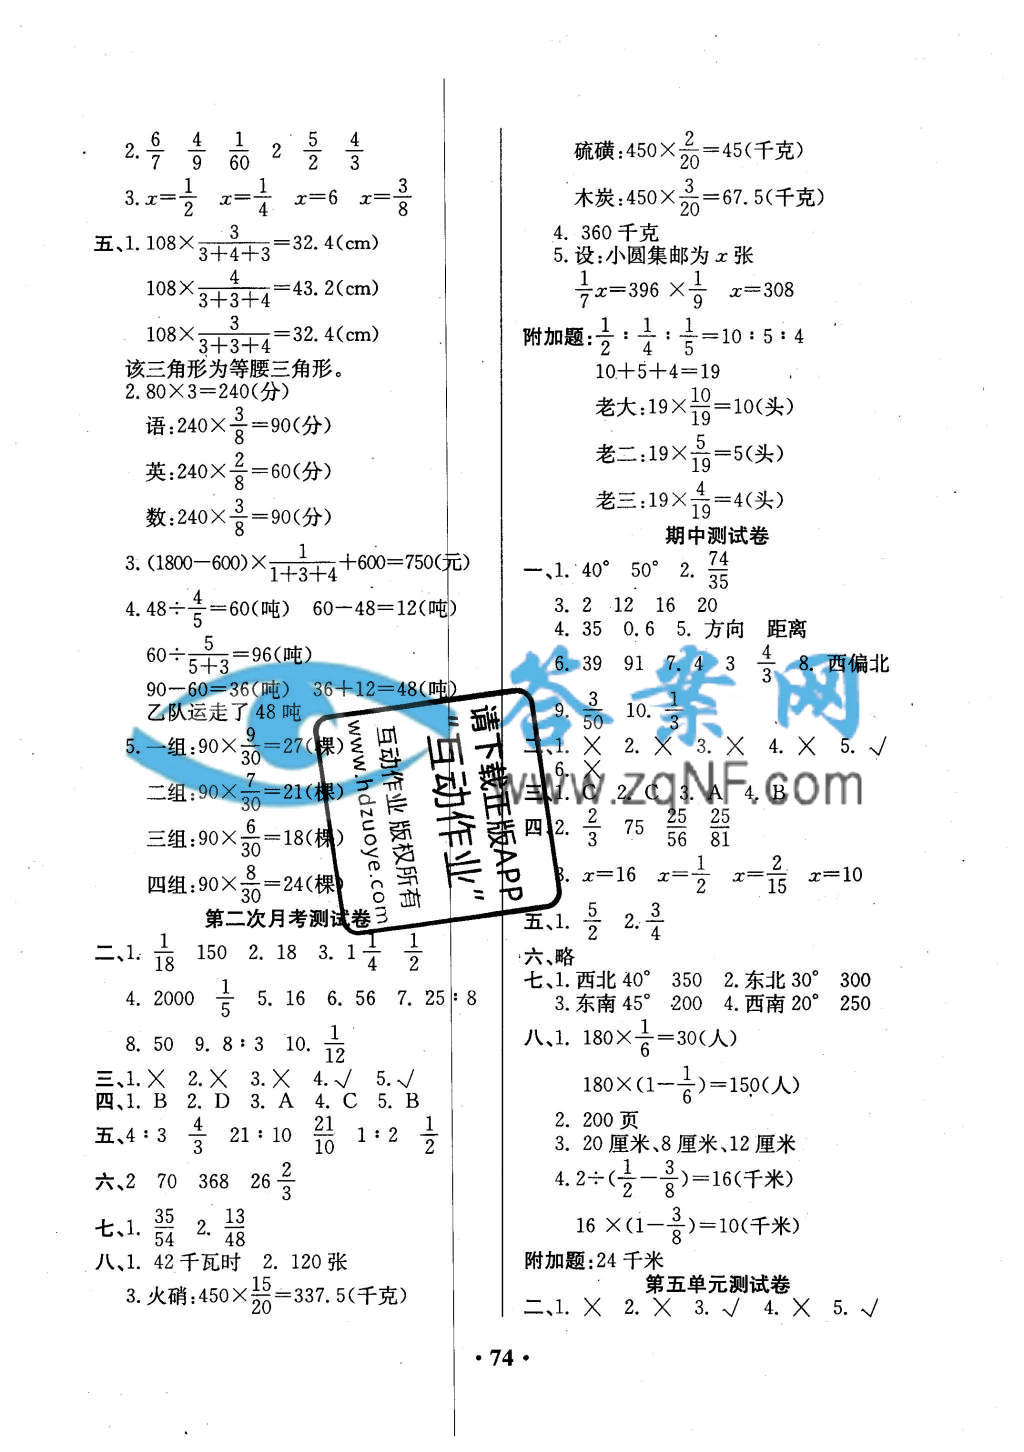 2. 6/7 4/9 1/60 2 5/2 4/3
3. x=1/2 x=1/4 x=6 x=3/8
五、1. 108×3/(3+4+3)=32.4(cm)
108×4/(3+3+4)=43.2(cm)
108×3/(3+3+4)=32.4(cm)
该三角形为等腰三角形。
2. 80×3=240(分)
语:240×3/8=90(分)
英:240×2/8=60(分)
数:240×3/8=90(分)
3. (1800-600)×1/(1+3+4)+600=750(元)
4. 48÷4/5=60(吨) 60-48=12(吨)
60÷5/(5+3)=96(吨)
90-60=36(吨) 36+12=48(吨)
乙队运走了 48 吨
5. 一组:90×9/30=27(棵)
二组:90×7/30=21(棵)
三组:90×6/30=18(棵)
四组:90×8/30=24(棵)
第二次月考测试卷
二、1. 1/18 150 2. 18 3. 1 1/4 1/2
4. 2000 1/5 5. 16 6. 56 7. 25∶8
8. 50 9. 8∶3 10. 1/12
三、1.× 2.× 3.× 4.√ 5.√
四、1. B 2. D 3. A 4. C 5. B
五、4∶3 4/3 21∶10 21/10 1∶2 1/2
六、2 70 368 26 2/3
七、1. 35/54 2. 13/48
八、1. 42 千瓦时 2. 120 张
3. 火硝:450×15/20=337.5(千克)
硫磺:450×2/20=45(千克)
木炭:450×3/20=67.5(千克)
4. 360 千克
5. 设:小圆集邮为 x 张
1/7x=396×1/9 x=308
附加题:1/2∶1/4∶1/5=10∶5∶4
10+5+4=19
老大:19×10/19=10(头)
老二:19×5/19=5(头)
老三:19×4/19=4(头)
期中测试卷
一、1. 40° 50° 2. 74/35
3. 2 12 16 20
4. 35 0.6 5. 方向 距离
6. 39 91 7. 4 3 4/3 8. 西偏北
9. 3/50 10. 1/3
二、1. × 2. × 3. × 4. × 5. √
6. ×
三、1. C 2. C 3. A 4. B
四、2. 2/3 75 25/56 25/81
3. x=16 x=1/2 x=2/15 x=10
五、1. 5/2 2. 3/4
六、略
七、1. 西北 40° 350 2. 东北 30° 300
3. 东南 45° 200 4. 西南 20° 250
八、1. 180×1/6=30(人)
180×(1-1/6)=150(人)
2. 200 页
3. 20 厘米、8 厘米、12 厘米
4. 2÷(1/2-3/8)=16(千米)
16×(1-3/8)=10(千米)
附加题:24 千米
第五单元测试卷
二、1. × 2. × 3. √ 4. × 5. √
· 74 ·
答案网
www.zqNF.com
请下载正版APP
“互动作业”
互动作业 版权所有
www.hdzuoye.com